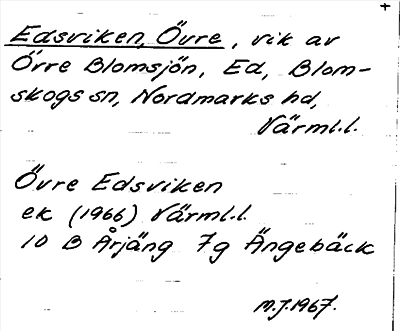 +
Edsviken, Övre, vik av
Övre Blomsjön, Ed, Blom-
skogs sn, Nordmarks hd,
Värml.l.
Övre Edsviken
ek (1966) Värml.l.
10 B Årjäng 7g Ängebäck
M.J.1967.